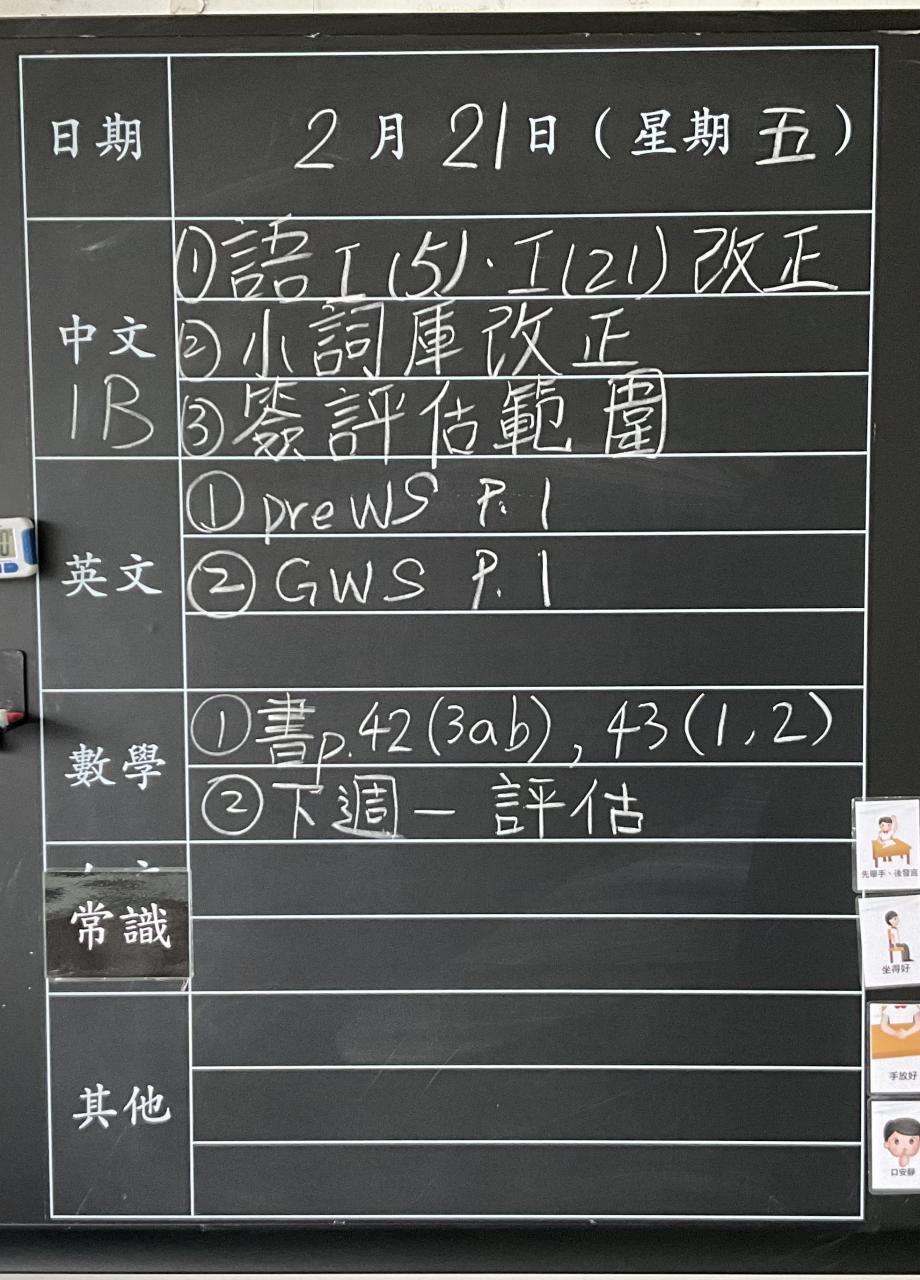 日期
2月21日（星期五）
中文
1B
①語I(5)、I(21)改正
②小詞庫改正
③簽評估範圍
英文
①preWS P.1
②GWS P.1
數學
①書p.42(3ab), 43(1,2)
②下週一評估
常識
其他
先舉手、後發言
坐得好
手放好
口安靜